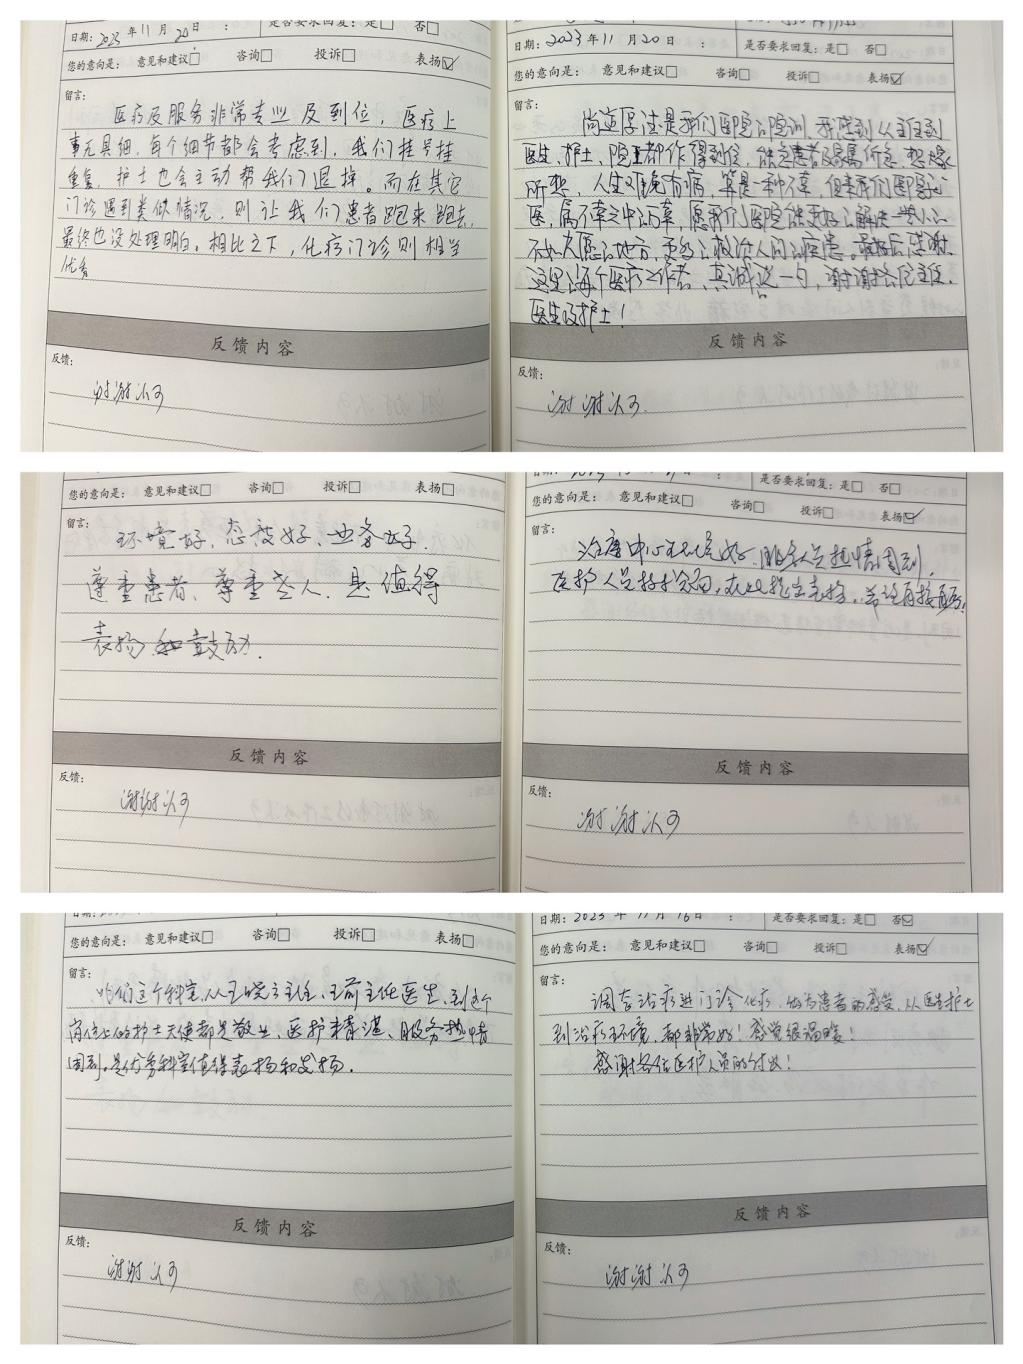 日期：2023年11月20日 ： 是否要求回复：是□ 否□
您的意向是： 意见和建议□ 咨询□ 投诉□ 表扬☑
留言：
医疗及服务非常专业及到位，医疗上
事无具细，每个细节都会考虑到，我们挂号挂
重复，护士也会主动帮我们退掉。而在其它
门诊遇到类似情况，则让我们患者跑来跑去，
最终也没处理明白。相比之下，化疗门诊则相当
优秀
反馈内容
反馈：
谢谢认可
日期：2023年11月20日 ： 是否要求回复：是□ 否□
您的意向是： 意见和建议□ 咨询□ 投诉□ 表扬☑
留言：
尚道厚德是我们医院的院训，我感到从主任到
医生、护士、院里都作得到位，能急患者及家属所急，想
所想，人生难免有病，算是一种不幸，但来我们医院
医，属不幸之中的万幸，愿我们医院能更好的解决一些小的
不如人愿的地方，更好的救治人间的疾患。最后感谢
这里的每个医疗工作者、真诚说一句，谢谢各位主任、
医生及护士！
反馈内容
反馈：
谢谢认可.
您的意向是： 意见和建议□ 咨询□ 投诉□ 表扬□
留言：
环境好、态度好、业务好.
尊重患者、尊重老人、是值得
表扬和鼓励.
反馈内容
反馈：
谢谢认可
是否要求回复：是□ 否□
您的意向是： 意见和建议□ 咨询□ 投诉□ 表扬☑
留言：
治疗中心环境好，服务人员热情周到，
医护人员技术，在此提出表扬，希望再接再厉！
反馈内容
反馈：
谢谢认可
您的意向是： 意见和建议□ 咨询□ 投诉□ 表扬□
留言：
咱们这个科室，从王晓主任、王前主任医生，到这个
岗位上的护士天使都是敬业、医护精湛、服务热情
周到。是优秀科室值得表扬和发扬.
反馈内容
反馈：
谢谢认可
日期：2023年11月16日 ： 是否要求回复：是□ 否☑
您的意向是： 意见和建议□ 咨询□ 投诉□ 表扬☑
留言：
调查治疗进门诊化疗，做为患者的感受，从医生护士
到治疗环境，都非常好！感觉很温暖！
感谢各位医护人员的付出！
反馈内容
反馈：
谢谢认可